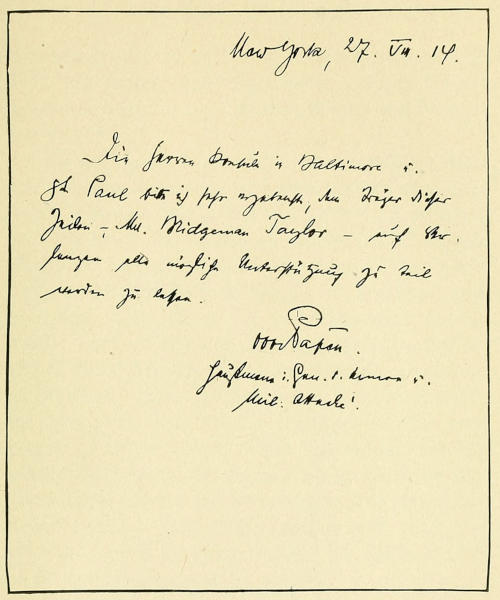 New York, 27. VIII. 14.
Die Herren Konsuln in Baltimore u.
St. Paul bitte ich sehr ergebenst, dem Träger dieser
Zeilen – Mr. Bridgeman Taylor – auf Ver-
langen alle mögliche Unterstützung zu teil
werden zu lassen.
von Papen.
Hauptmann i. Gen. d. Armee u.
Mil. Attaché.